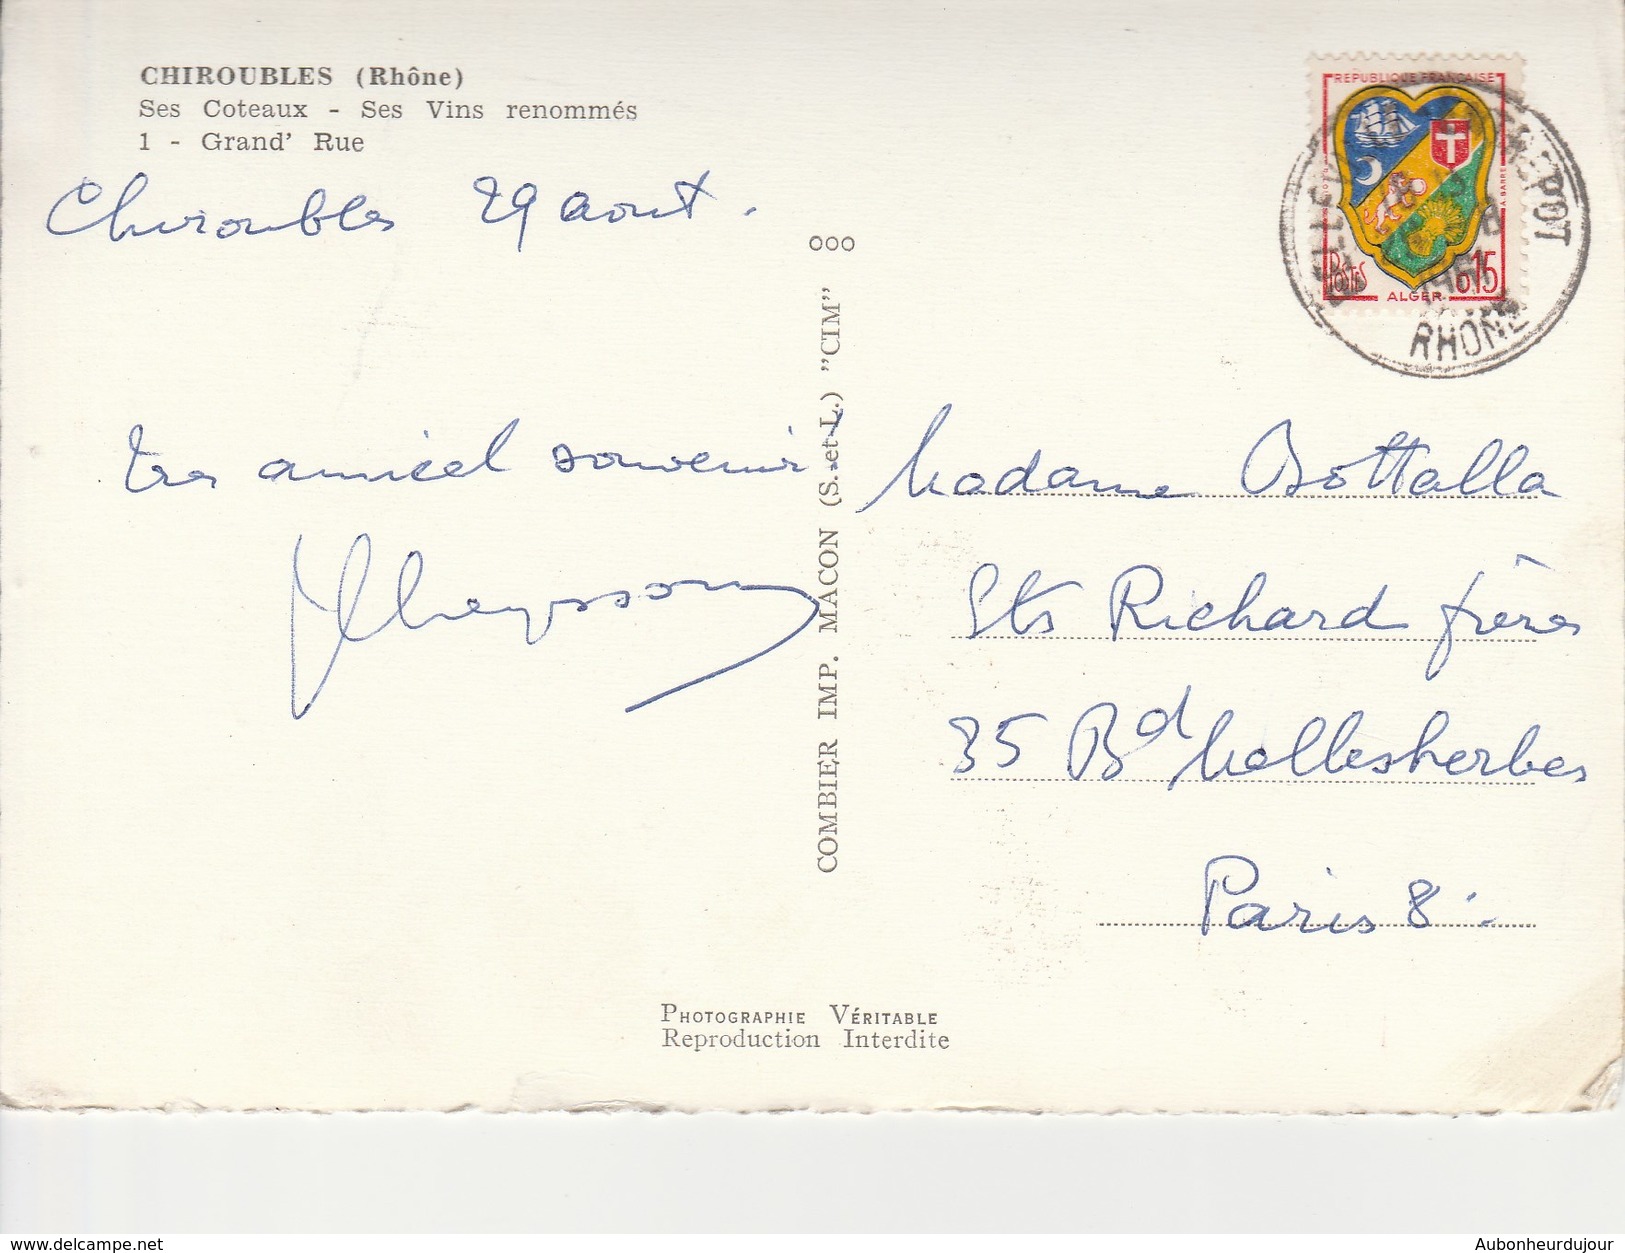 CHIROUBLES (Rhône)
Ses Coteaux - Ses Vins renommés
1 - Grand' Rue
Chiroubles 29 aout.
tres amical souvenir
Cheysson
COMBIER IMP. MACON (S. et L.) "CIM"
REPUBLIQUE FRANÇAISE
POSTES
0,15
ALGER
1961
RHONE
Madame Bottalla
Ets Richard frères
35 Bd Malesherbes
Paris 8
PHOTOGRAPHIE VÉRITABLE
Reproduction Interdite
www.delcampe.net
Aubonheurdujour